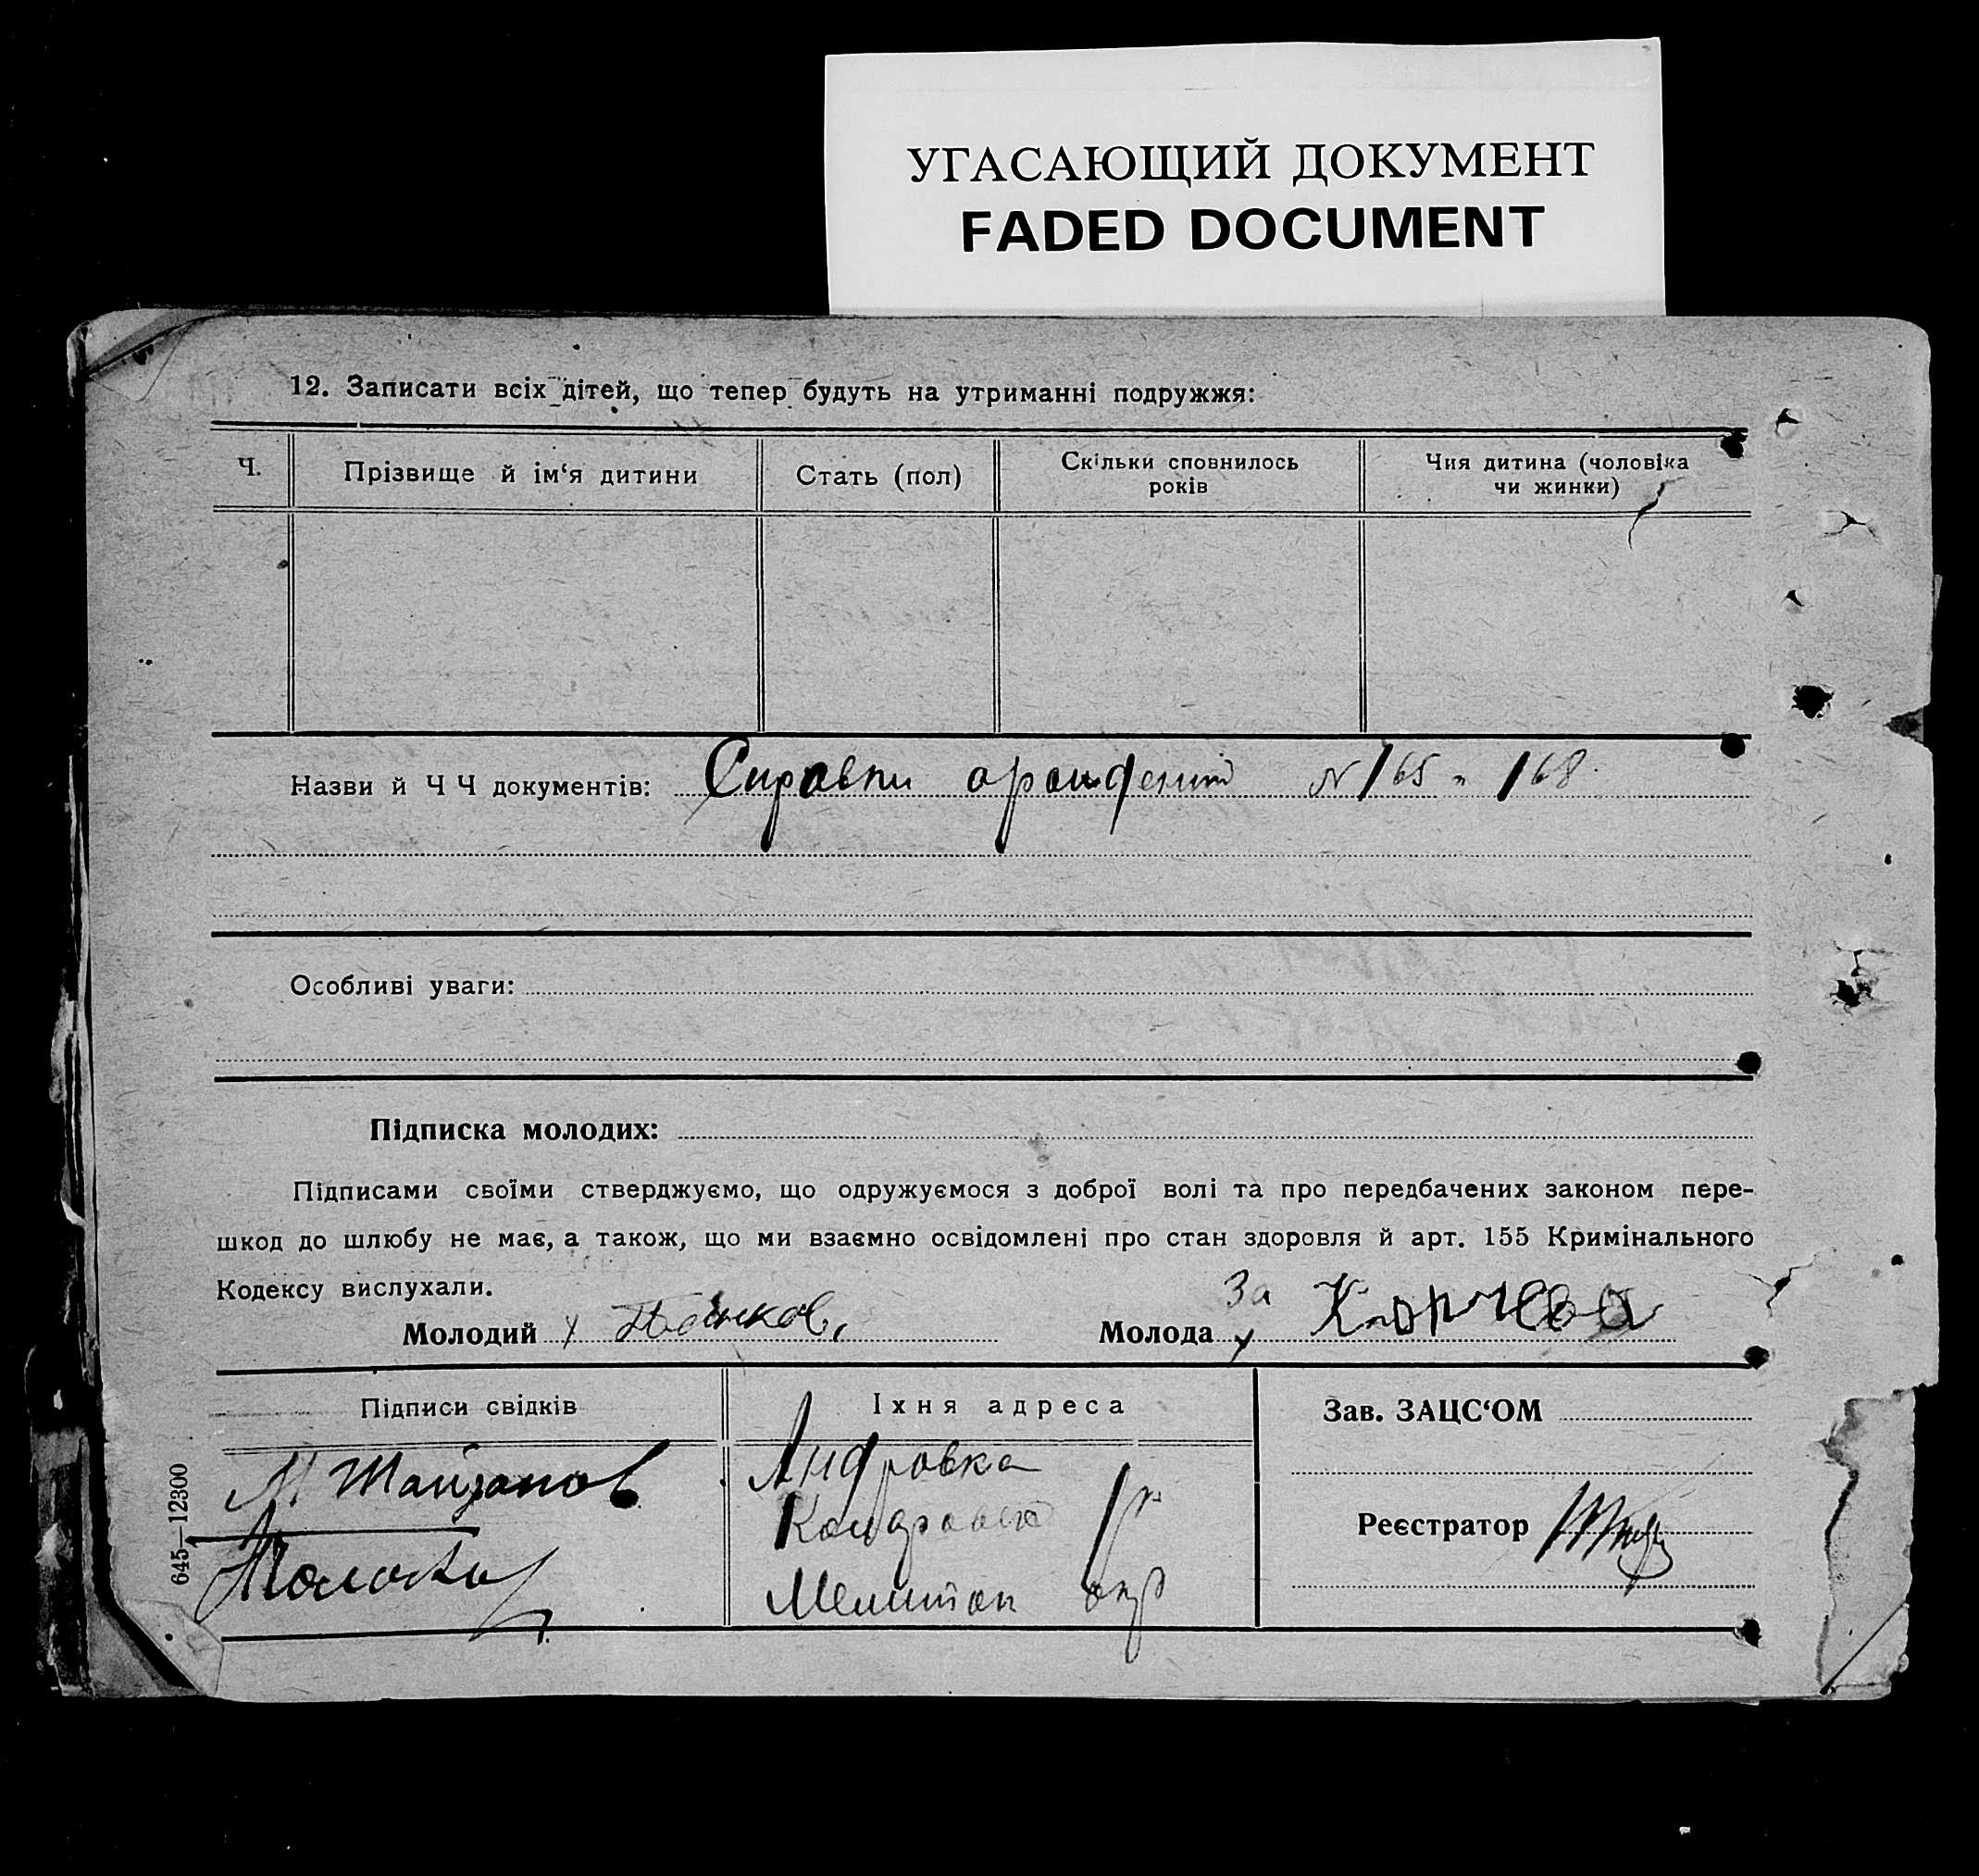 УГАСАЮЩИЙ ДОКУМЕНТ
FADED DOCUMENT
12. Записати всіх дітей, що тепер будуть на утриманні подружжя:
Ч.
Прізвище й ім‘я дитини
Стать (пол)
Скільки сповнилось
років
Чия дитина (чоловіка
чи жинки)
Назви й Ч Ч документів: Справки № 165 168
Особливі уваги:
Підписка молодих:
Підписами своїми стверджуємо, що одружуємося з доброї волі та про передбачених законом пере-
шкод до шлюбу не має, а також, що ми взаємно освідомлені про стан здоровля й арт. 155 Кримінального
Кодексу вислухали.
Молодий
Молода За
Підписи свідків
Їхня адреса
Андровка
Мелитоп окр
Зав. ЗАЦС‘ОМ
Реєстратор
645—12300